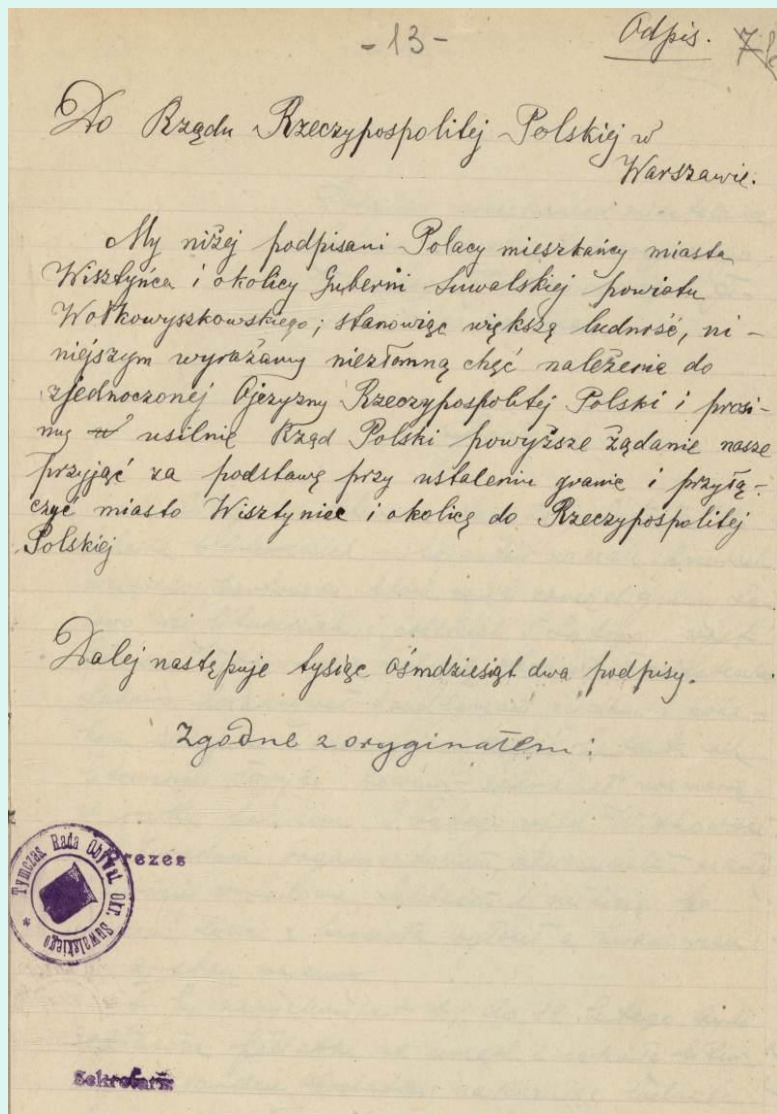 -13-
Odpis.
Do Rządu Rzeczypospolitej Polskiej w
Warszawie.
My niżej podpisani Polacy mieszkańcy miasta
Wisztyńca i okolicy Guberni Suwalskiej powiatu
Wołkowyszkowskiego; stanowiąc większą ludność, ni-
niejszym wyrażamy niezłomną chęć należenie do
zjednoczonej Ojczyzny Rzeczypospolitej Polski i prosi-
my usilnie Rząd Polski powyższe żądanie nasze
przyjąć za podstawę przy ustaleniu granic i przyłą-
czyć miasto Wisztyniec i okolicę do Rzeczypospolitej
Polskiej
Dalej następuje tysiąc ośmdziesiąt dwa podpisy.
Zgodne z oryginałem:
Prezes
Tymczas. Rada Obywat. Okr. Suwalskiego
Sekretarz